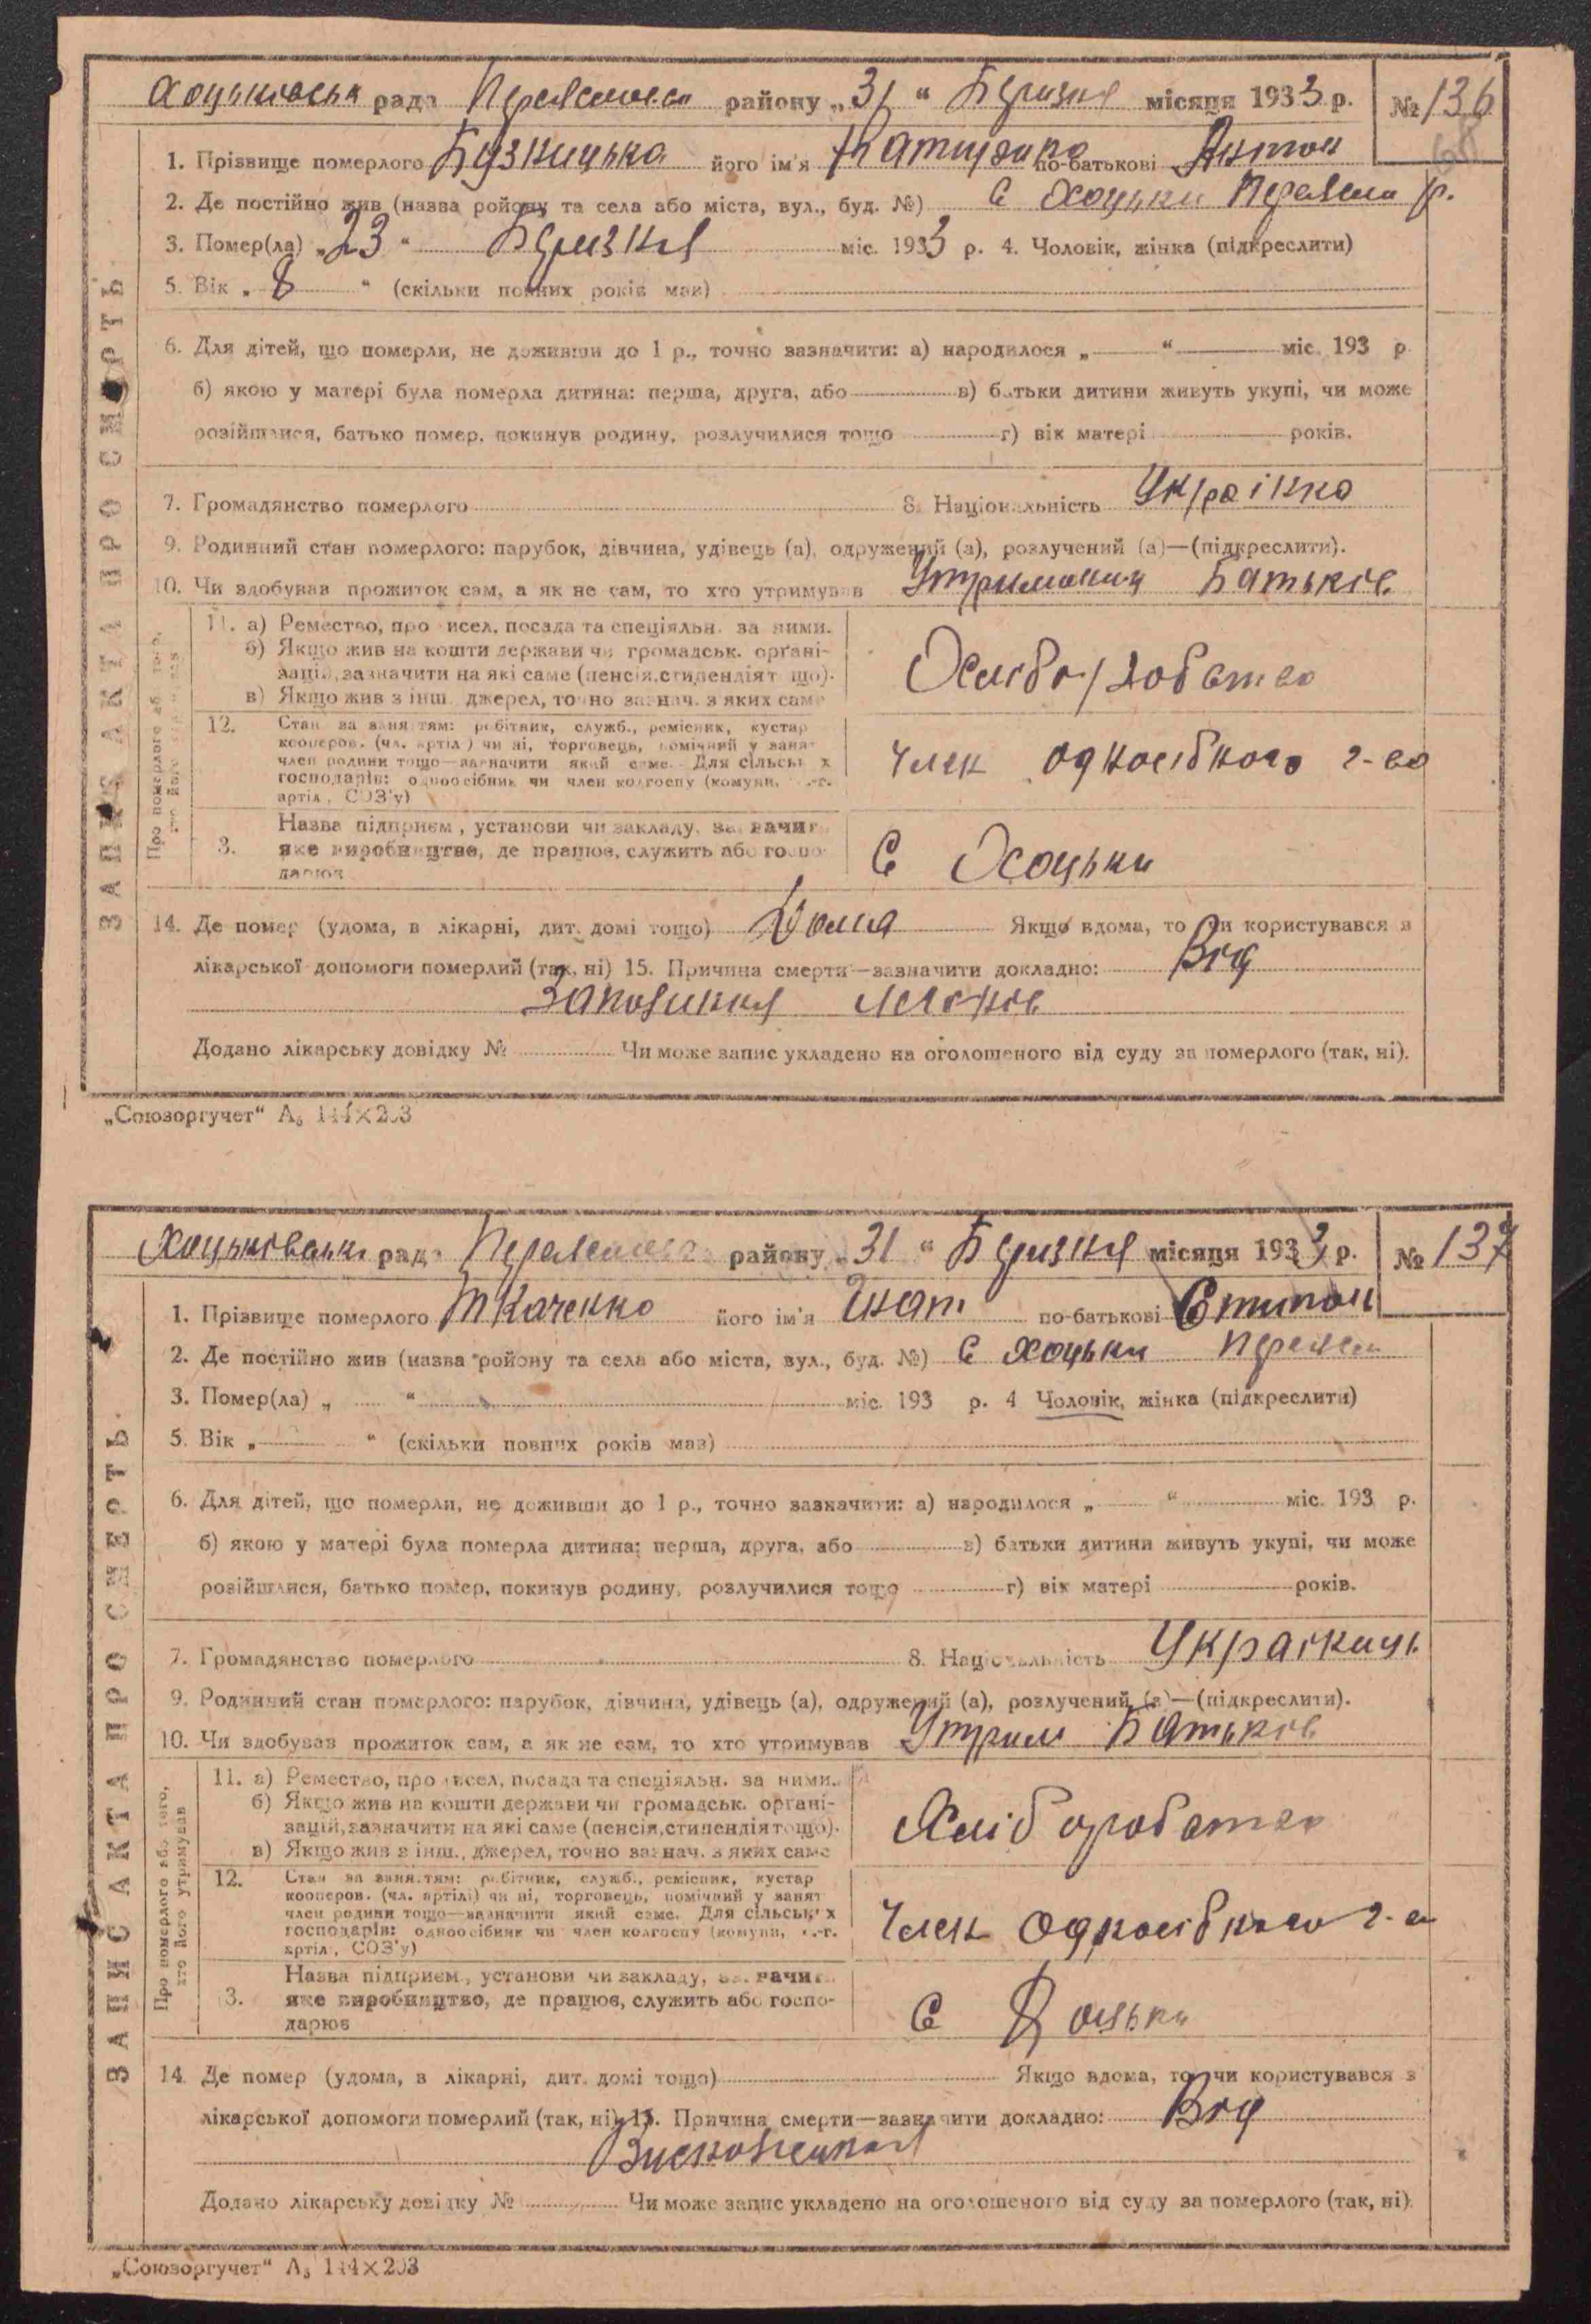 Хоцьківська рада Переяславсь району „31“ Березня місяця 1933 р. № 136
68
1. Прізвище померлого Бузницька його ім'я Катерина по-батькові Антон
2. Де постійно жив (назва ройону та села або міста, вул., буд. №) С Хоцьки Переясла р.
3. Помер(ла) „23“ Березня міс. 1933 р. 4. Чоловік, жінка (підкреслити)
5. Вік „8“ (скільки повних років мав)
6. Для дітей, що померли, не доживши до 1 р., точно зазначити: а) народилося „ “ міс. 193 р.
б) якою у матері була померла дитина: перша, друга, або в) батьки дитини живуть укупі, чи може
розійшлися, батько помер, покинув родину, розлучилися тощо г) вік матері років.
7. Громадянство померлого 8. Національність Українка
9. Родинний стан померлого: парубок, дівчина, удівець (а), одружений (а), розлучений (а)—(підкреслити).
10. Чи здобував прожиток сам, а як не сам, то хто утримував Утриманка Батьків
ЗАПИС АКТА ПРО СМЕРТЬ.
Про померлого або того, хто його утримував
11. а) Ремество, про исел, посада та спеціяльн. за ними.
б) Якщо жив на кошти держави чи громадськ. органі-
зацій, зазначити на які саме (пенсія, стипендія тощо).
в) Якщо жив з інш. джерел, точно зазнач. з яких саме
Хлібо робство
12. Стан за занятям: робітник, служб., ремісник, кустар
кооперов. (чл. артілі) чи ні, торговець, помічний у занят
член родини тощо—зазначити який саме. Для сільськ х
господарів: одноосібник чи член колгоспу (комуни, с.-г.
артіл., СОЗ'у)
Член одноосібного г-ва
3. Назва підприєм., установи чи закладу, зазначит
яке виробництво, де працює, служить або госпо-
дарює
С Хоцьки
14. Де помер (удома, в лікарні, дит. домі тощо) Дома Якщо вдома, то чи користувався з
лікарської допомоги померлий (так, ні) 15. Причина смерти—зазначити докладно: Від
Запалення легенів
Додано лікарську довідку № Чи може запис укладено на оголошеного від суду за померлого (так, ні).
„Союзоргучет“ А₅ 144×203
Хоцьківська рада Переяславсь району „31“ Березня місяця 1933 р. № 137
1. Прізвище померлого Ткаченко його ім'я Гнат по-батькові Степан
2. Де постійно жив (назва ройону та села або міста, вул., буд. №) С Хоцьки Переясл
3. Помер(ла) „ “ міс. 193 р. 4 Чоловік, жінка (підкреслити)
5. Вік „ “ (скільки повних років мав)
6. Для дітей, що померли, не доживши до 1 р., точно зазначити: а) народилося „ “ міс. 193 р.
б) якою у матері була померла дитина: перша, друга, або в) батьки дитини живуть укупі, чи може
розійшлися, батько помер, покинув родину, розлучилися тощо г) вік матері років.
7. Громадянство померлого 8. Національність Українець
9. Родинний стан померлого: парубок, дівчина, удівець (а), одружений (а), розлучений (а)—(підкреслити).
10. Чи здобував прожиток сам, а як не сам, то хто утримував Утрим Батьків
ЗАПИС АКТА ПРО СМЕРТЬ.
Про померлого або того, хто його утримував
11. а) Ремество, про исел, посада та спеціяльн. за ними.
б) Якщо жив на кошти держави чи громадськ. органі-
зацій, зазначити на які саме (пенсія, стипендія тощо).
в) Якщо жив з інш., джерел, точно зазнач. з яких саме
Хліборобство
12. Стан за занятям: робітник, служб., ремісник, кустар
кооперов. (чл. артілі) чи ні, торговець, помічний у занят
член родини тощо—зазначити який саме. Для сільськ х
господарів: одноосібник чи член колгоспу (комуни, с.-г.
артіл., СОЗ'у)
Член одноосібного г-ва
3. Назва підприєм., установи чи закладу, зазначит
яке виробництво, де працює, служить або госпо-
дарює
С Хоцьки
14. Де помер (удома, в лікарні, дит. домі тощо) Якщо вдома, то чи користувався з
лікарської допомоги померлий (так, ні) 15. Причина смерти—зазначити докладно: Від
Виснаження
Додано лікарську довідку № Чи може запис укладено на оголошеного від суду за померлого (так, ні).
„Союзоргучет“ А₅ 144×203